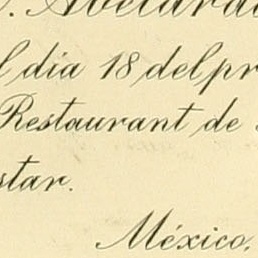 D. Abelardo
día 18 del pr
Restaurant de
star.
México,